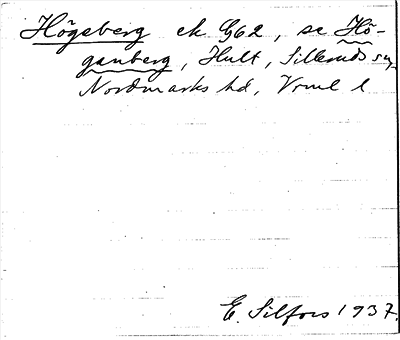 Högsberg ek G62, se Hö-
ganberg, Hult, Silleruds sn,
Nordmarks hd, Vrml l
E. Silfors 1937.